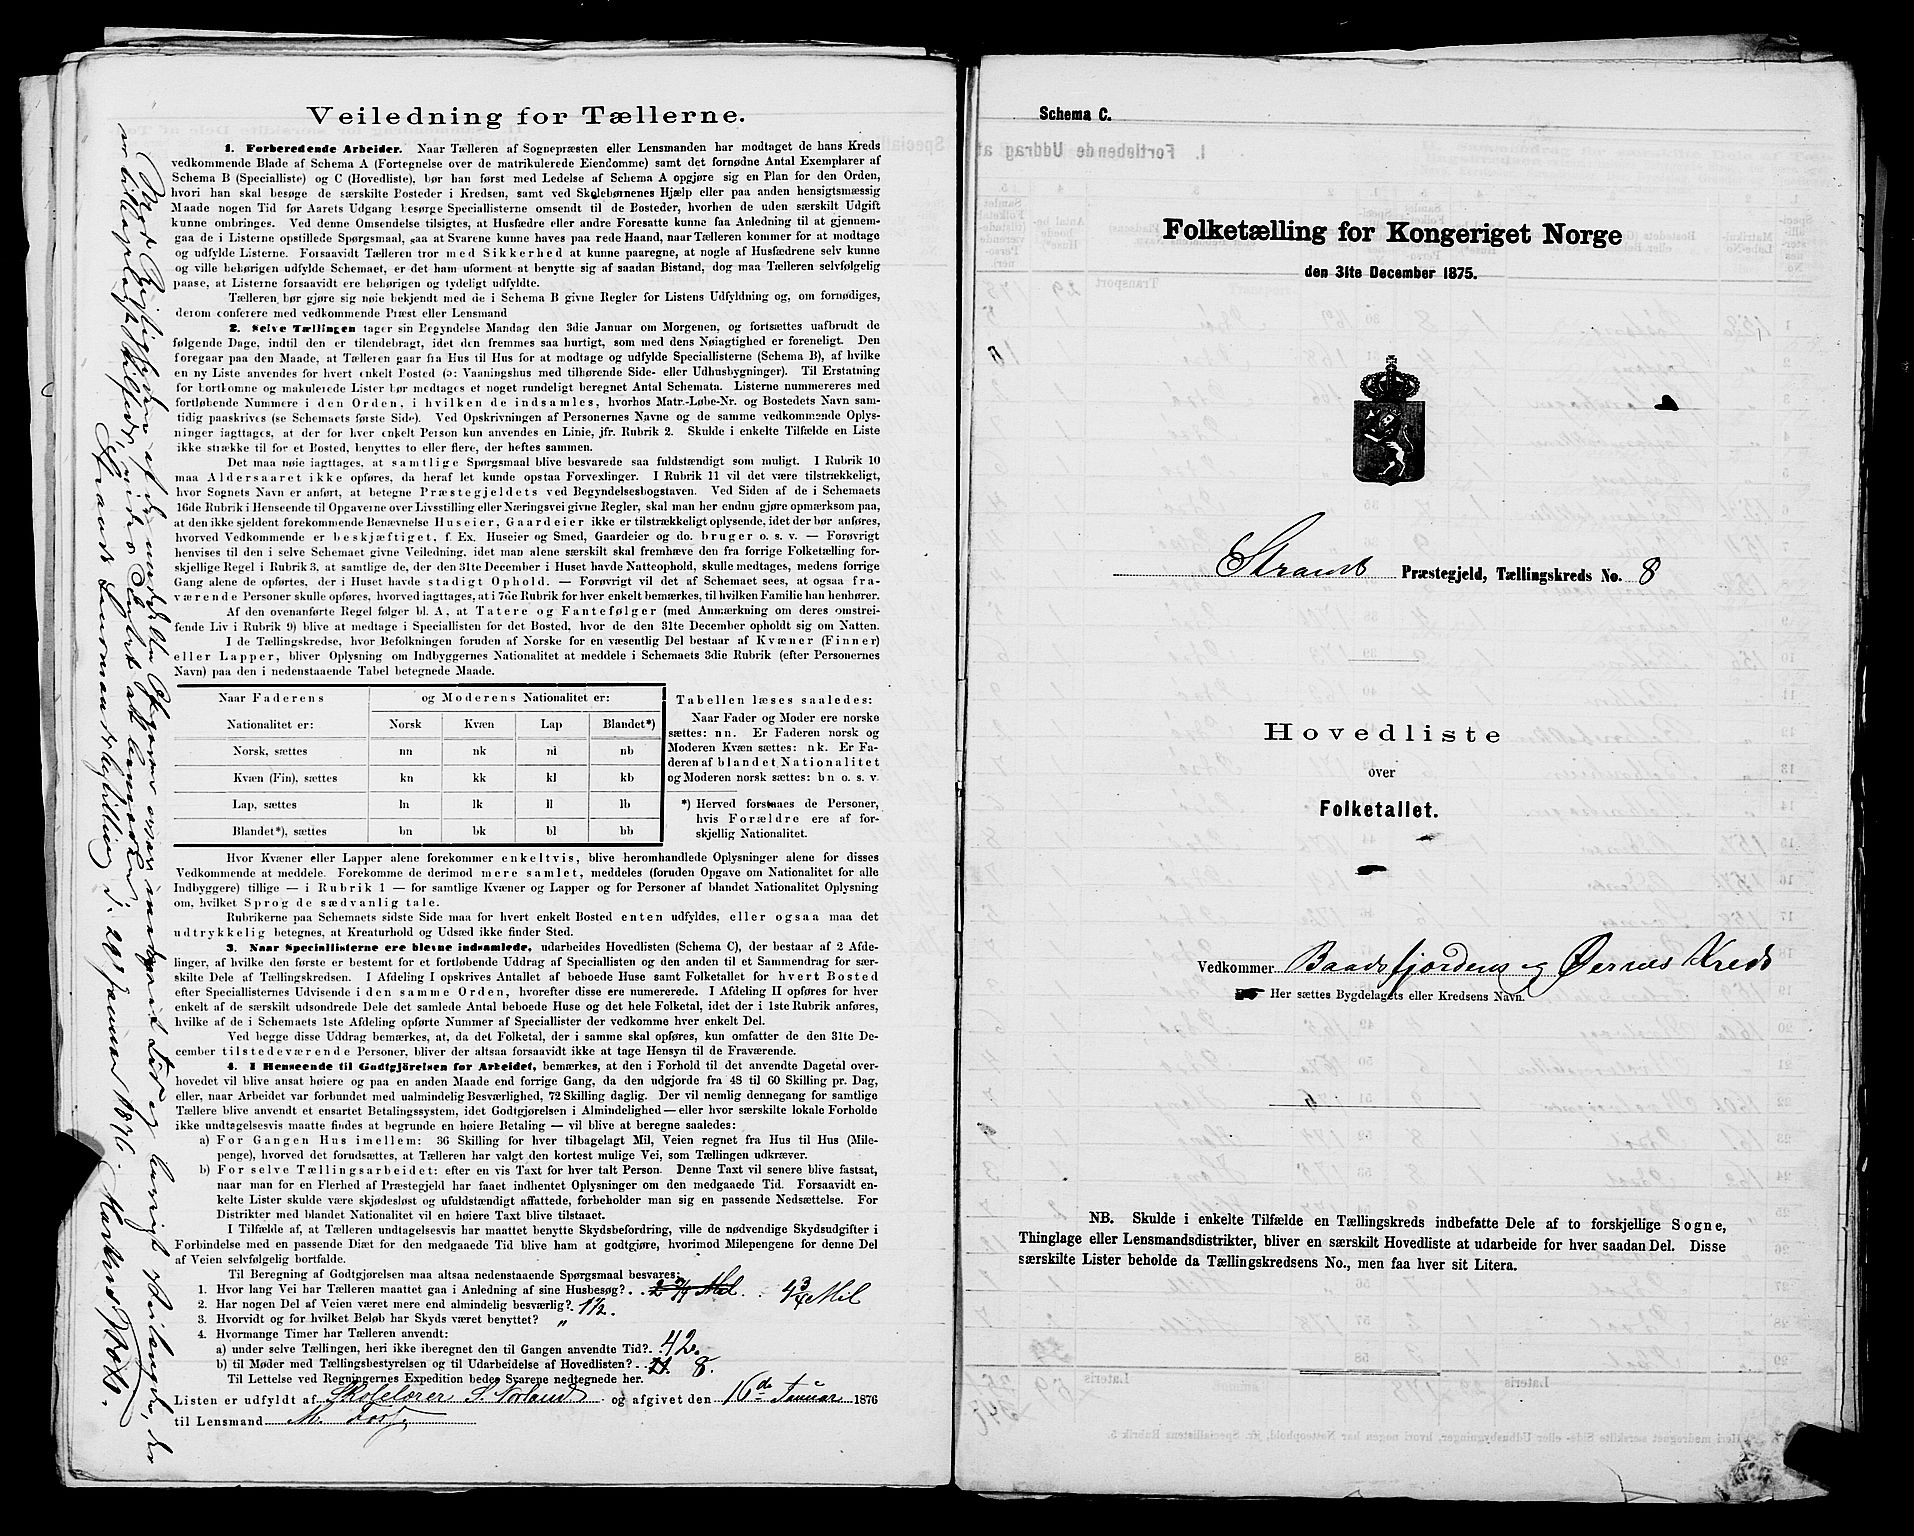 Veiledning for Tællerne.
1. Forberedende Arbeider. Naar Tælleren af Sognepræsten eller Lensmanden har modtaget de hans Kreds
vedkommende Blade af Schema A (Fortegnelse over de matrikulerede Eiendomme) samt det fornødne Antal Exemplarer af
Schema B (Specialliste) og C (Hovedliste), bør han først med Ledelse af Schema A opgjøre sig en Plan for den Orden,
hvori han skal besøge de særskilte Bosteder i Kredsen, samt ved Skolebørnenes Hjælp eller paa anden hensigtsmæssig
Maade nogen Tid før Aarets Udgang besørge Speciallisterne omsendt til de Bosteder, hvorhen de uden særskilt Udgift
kunne ombringes. Ved denne Omsendelse tilsigtes, at Husfædre eller andre Foresatte kunne faa Anledning til at gjennem-
gaa de i Listerne opstillede Spørgsmaal, gaa at Svarene kunne haves paa rede Haand, naar Tælleren kommer for at modtage
og udfylde Listerne. Forsaavidt Tælleren tror med Sikkerhed at kunne paaregne, at nogle af Husfædrene selv kunne
og ville behørigen udfylde Schemaet, er det ham uforment at benytte sig af saadan Bistand, dog maa Tælleren selvfølgelig
paase, at Listerne forsaavidt ere behørigen og tydeligt udfyldte.
Tælleren bør gjøre sig nøie bekjendt med de i Schema B givne Regler for Listens Udfyldning og, om fornødiges,
derom conferere med vedkommende Præst eller Lensmand
2. Selve Tællingen tager sin Begyndelse Mandag den 3die Januar om Morgenen, og fortsættes uafbrudt de
følgende Dage, indtil den er tilendebragt, idet den fremmes saa hurtigt, som med dens Nøiagtighed er foreneligt. Den
foregaar paa den Maade, at Tælleren gaar fra Hus til Hus for at modtage og udfylde Speciallisterne (Schema B), af hvilke
en ny Liste anvendes for hvert enkelt Bosted (ɔ: Vaaningshus med tilhørende Side- eller Udhusbygninger). Til Erstatning
for bortkomne og makulerede Lister bør medtages et noget rundeligt beregnet Antal Schemata. Listerne nummereres med
fortløbende Nummere i den Orden, i hvilken de indsamles, hvorhos Matr.-Løbe-Nr. og Bostedets Navn sam-
tidig paaskrives (se Schemaets første Side). Ved Opskrivningen af Personernes Navne og de samme vedkommende Oplys-
ninger iagttages, at der for hver enkelt Person kun anvendes en Linie, jfr. Rubrik 2. Skulde i enkelte Tilfælde en Liste
ikke strække til for et Bosted, benyttes to eller flere, der heftes sammen.
Det maa nøie iagttages, at samtlige Spørgsmaal blive besvarede saa fuldstændigt som muligt. I Rubrik 10
maa Aldersaaret ikke opføres, da heraf let kunde opstaa Forvexlinger. I Rubrik 11 vil det være tilstrækkeligt,
hvor Sognets Navn er anført, at betegne Præstegjeldets ved Begyndelsesbogstaven. Ved Siden af de i Schemaets
16de Rubrik i Henseende til Opgaverne over Livsstilling eller Næringsvei givne Regler, skal man her endnu gjøre opmærksom paa,
at den ikke sjeldent forekommende Benævnelse Huseier, Gaardeier ikke er tilstrækkeligt oplysende, idet der bør anføres,
hvorved Vedkommende er beskjæftiget, f. Ex. Huseier og Smed, Gaardeier og do. bruger o. s. v. — Forøvrigt
henvises til den i selve Schemaet givne Veiledning, idet man alene særskilt skal fremhæve den fra forrige Folketælling for-
skjellige Regel i Rubrik 3, at samtlige de, der den 31te December i Huset havde Natteophold, skulle medtages, medens forrige
Gang alene de opførtes, der i Huset havde stadigt Ophold. — Forøvrigt vil det af Schemaet sees, at ogsaa fra-
værende Personer skulle opføres, hvorved iagttages, at i 7de Rubrik for hver enkelt bemærkes, til hvilken Familie han henhører.
Af den ovenanførte Regel følger bl. A., at Tatere og Fantefølger (med Anmærkning om deres omstrei-
fende Liv i Rubrik 9) blive at medtage i Speciallisten for det Bosted, hvor de den 31te December opholdt sig om Natten.
I de Tællingskredse, hvor Befolkningen foruden af Norske for en væsentlig Del bestaar af Kvæner (Finner)
eller Lapper, bliver Oplysning om Indbyggernes Nationalitet at meddele i Schemaets 3die Rubrik (efter Personernes
Navn) paa den i nedenstaaende Tabel betegnede Maade.
Naar Faderens og Moderens Nationalitet er:
Nationalitet er: Norsk Kvæn Lap Blandet*)
Norsk, sættes nn nk nl nb
Kvæn (Fin), sættes kn kk kl kb
Lap, sættes ln lk ll lb
Blandet*), sættes bn bk bl bb
Tabellen læses saaledes:
Naar Fader og Moder ere norske
sættes: nn. Er Faderen norsk og
Moderen Kvæn sættes: nk. Er Fa-
deren af blandet Nationalitet
og Moderen norsk sættes: bn o. s. v.
*) Herved forstaaes de Personer,
hvis Forældre ere af for-
skjellig Nationalitet.
Hvor Kvæner eller Lapper alene forekommer enkeltvis, blive heromhandlede Oplysninger alene for disses
Vedkommende at meddele. Forekomme de derimod mere samlet, meddeles (foruden Opgave om Nationalitet for alle
Indbyggere) tillige — i Rubrik 1 — for samtlige Kvæner og Lapper og for Personer af blandet Nationalitet Oplysning
om, hvilket Sprog de sædvanlig tale.
Rubrikerne paa Schemaets sidste Side maa for hvert enkelt Bosted enten udfyldes, eller ogsaa maa det
udtrykkelig betegnes, at Kreaturhold og Udsæd ikke finder Sted.
3. Naar Speciallisterne ere blevne indsamlede, udarbeides Hovedlisten (Schema C), der bestaar af 2 Afde-
linger, af hvilke den første er bestemt for et fortløbende Uddrag af Speciallisten og den anden til et Sammendrag for sær-
skilte Dele af Tællingskredsen. I Afdeling I opskrives Antallet af beboede Huse samt Folketallet for hvert Bosted
efter Speciallisternes Udvisende i den samme Orden, hvorefter disse ere numererede. I Afdeling II opføres for hver
enkelt af de særskilt udsondrede Dele det samlede Antal beboede Huse og det hele Folketal, idet der i 1ste Rubrik anføres,
hvilke af de i Schemaets 1ste Afdeling opførte Nummer af Specialister der vedkomme hver enkelt Del.
Ved begge disse Uddrag bemærkes, at, da det Folketal, der i samme skal opføres, kun omfatter de den 31te De-
cember tilstedeværende Personer, bliver der altsaa forsaavidt ikke at tage Hensyn til de Fraværende.
4. I Henseende til Godtgjörelsen for Arbeidet, bemærkes, at den i Forhold til det anvendte Dagetal over-
hovedet vil blive ansat høiere og paa en anden Maade end forrige Gang, da den udgjorde fra 48 til 60 Skilling pr. Dag,
eller, naar Arbeidet var forbundet med ualmindelig Besværlighed, 72 Skilling daglig. Der vil nemlig dennegang for samtlige
Tællere blive anvendt et ensartet Betalingssystem, idet Godtgjörelsen i Almindelighed — eller hvor særskilte lokale Forholde
ikke undtagelsesvis maatte findes at begrunde en høiere Betaling — vil blive at beregne saaledes:
a) For Gangen Hus imellem: 36 Skilling for hver tilbagelagt Mil, Veien regnet fra Hus til Hus (Mile-
penge), hvorved det forudsættes, at Tælleren har valgt den kortest mulige Vei, som Tællingen udkræver.
b) For selve Tællingsarbeidet: efter en vis Taxt for hver talt Person. Denne Taxt vil senere blive fastsat,
naar man for en Flerhed af Præstegjeld har faaet indhentet Oplysninger om den medgaaede Tid. Forsaavidt en-
kelte Lister skulde være skjødesløst og ufuldstændigt affattede, forbeholder man sig en passende Nedsættelse. For
Distrikter med blandet Nationalitet vil en høiere Taxt blive tilstaaet.
I Tilfælde af, at Tælleren undtagelsesvis har maattet benytte Skydsbefordring, ville de nødvendige Skydsudgifter i
Forbindelse med en passende Diæt for den medgaaede Tid blive ham at godtgjøre, hvorimod Milepengene for denne Del
af Veien selvfølgelig bortfalde.
Til Beregning af Godtgjörelsen maa altsaa nedenstaaende Spørgsmaal besvares:
1. Hvor lang Vei har Tælleren maattet gaa i Anledning af sine Husbesøg? 4 3/4 Mil
2. Har nogen Del af Veien været mere end almindelig besværlig? 1 1/2.
3. Hvorvidt og for hvilket Beløb har Skyds været benyttet? „
4. Hvormange Timer har Tælleren anvendt:
a) under selve Tællingen, heri ikke iberegnet den til Gangen anvendte Tid? 42.
b) til Møder med Tællingsbestyrelsen og til Udarbeidelse af Hovedlisten? 8.
Til Lettelse ved Regningernes Expedition bedes Svarene nedtegnede her.
Listen er udfyldt af Skolelærer S. Norland og afgivet den 16de Januar 1876
til Lensmand
Schema C.
Folketælling for Kongeriget Norge
den 31te December 1875.
Strand Præstegjeld, Tællingskreds No. 8
Hovedliste
over
Folketallet.
Vedkommer Baadsfjordens og Øernes Kreds
Her sættes Bygdelagets eller Kredsens Navn.
NB. Skulde i enkelte Tilfælde en Tællingskreds indbefatte Dele af to forskjellige Sogne,
Thinglage eller Lensmandsdistrikter, bliver en særskilt Hovedliste at udarbeide for hver saadan Del. Disse
særskilte Lister beholde da Tællingskredsens No., men faa hver sit Litera.